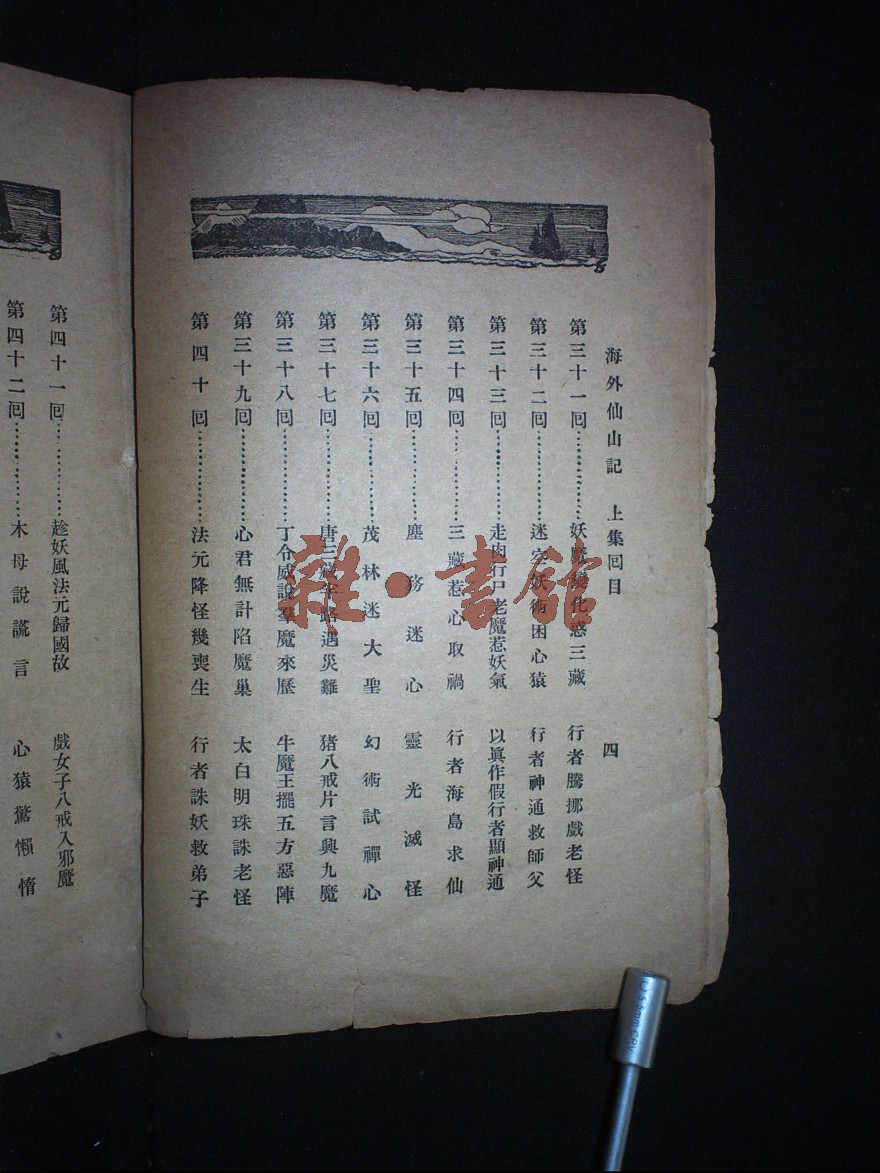 海外仙山記　上集回目　四
第三十一回……………妖魔變化惑三藏　行者騰挪戲老怪
第三十二回……………迷空妖術困心猿　行者神通救師父
第三十三回……………走肉行尸老魔惹妖氣　以眞作假行者顯神通
第三十四回……………三藏惹心取禍　行者海島求仙
第三十五回……………塵務迷心　靈光滅怪
第三十六回……………茂林迷大聖　幻術試禪心
第三十七回……………唐三藏半路遇災難　猪八戒片言興九魔
第三十八回……………丁令威說羣魔來歷　牛魔王擺五方惡陣
第三十九回……………心君無計陷魔巢　太白明珠誅老怪
第四十回……………法元降怪幾喪生　行者誅妖救弟子
第四十一回……………趁妖風法元歸國故　戲女子八戒入邪魔
第四十二回……………木母說謊言　心猿驚懶惰
雜·書館
5.5mm